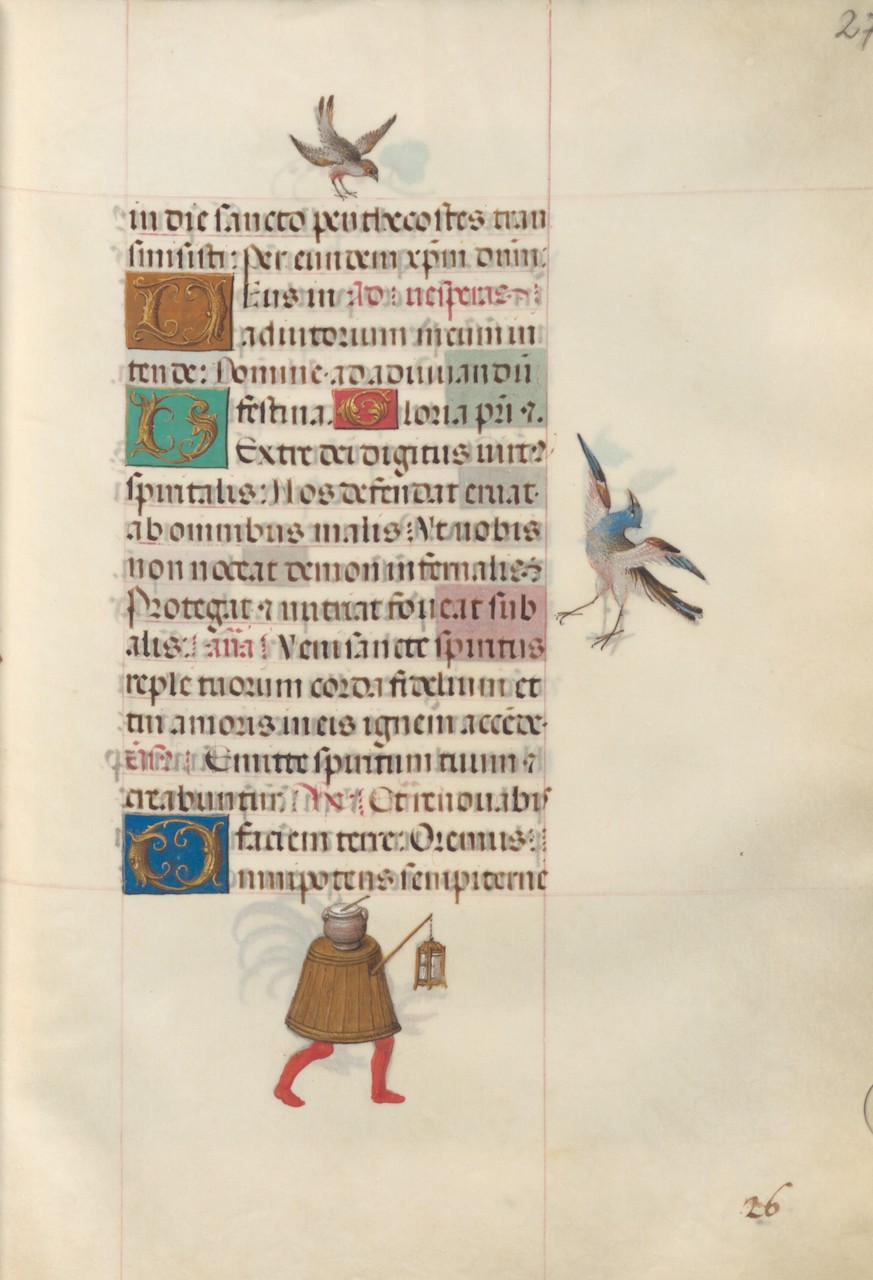 27
in die sancto penthecostes tran
simisisti: Per eundem xpm dnm:
Deus in Ad vesperas
adiutorium meum in
tende: Domine ad adiuuandu
festina. Gloria pri ⁊.
Dextre dei digitus uirt⁊
spiritalis: Nos defendat eruat
ab omnibus malis: Ut nobis
non noceat demon infernalis
Protegat ⁊ nutriat foueat sub
alis: ana Veni sancte spiritus
reple tuorum corda fidelium et
tui amoris in eis ignem accede
Emitte spiritum tuum ⁊
creabuntur. Et renouabis
faciem terre: Oremus:
Omnipotens sempiterne
26